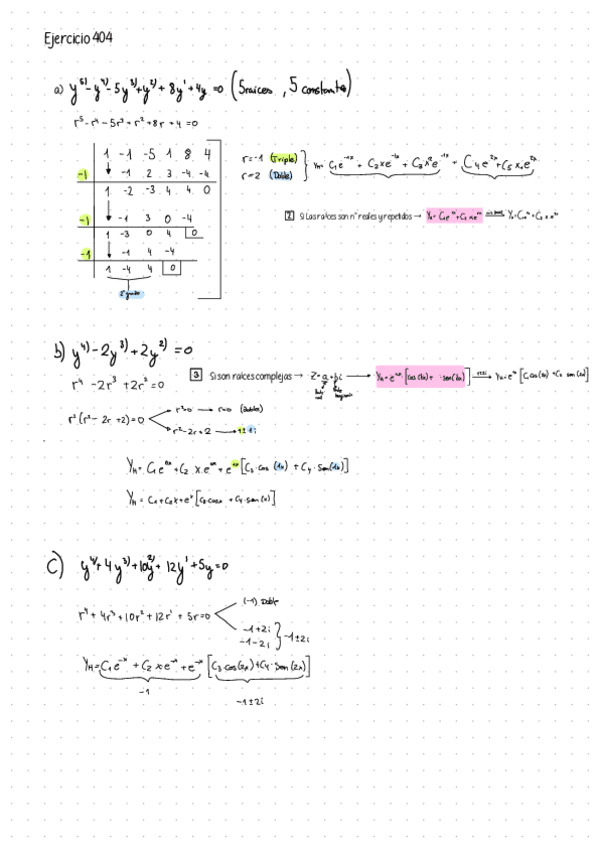 Ejercicio 404
a) y⁵⁾-y⁴⁾-5y³⁾+y²⁾+8y'+4y=0 (5 raíces, 5 constantes)
r⁵-r⁴-5r³+r²+8r+4=0
1 -1 -5 1 8 4
-1 ↓ -1 2 3 -4 -4
1 -2 -3 4 4 0
-1 ↓ -1 3 0 -4
1 -3 0 4 0
-1 ↓ -1 4 -4
1 -4 4 0
2º grado
r=-1 (Triple)
r=2 (Doble)
Yн= C₁e⁻ˣ + C₂xe⁻ˣ + C₃x²e⁻ˣ + C₄e²ˣ+C₅x.e²ˣ
2 Si Las raíces son nº reales y repetidos →
b) y⁴⁾-2y³⁾+2y²⁾=0
r⁴ -2r³ +2r²=0
3 Si son raíces complejas → Z=a±bi →
r²(r²-2r+2)=0
r²=0 → r=0 (Doble)
r²-2r+2 → +1±i
Yн= C₁e⁰ˣ+C₂ x.e⁰ˣ+e¹ˣ[C₃·cos (1x) + C₄·Sen(1x)]
Yн= C₁+C₂x+eˣ[C₃cosx + C₄·sen(x)]
C) y⁴⁾+4y³⁾+10y²⁾+12y'+5y=0
r⁴+4r³+10r²+12r'+5r=0
(-1) Doble
-1+2i
-1-2i
-1±2i
Yн=C₁e⁻ˣ+C₂xe⁻ˣ+e⁻ˣ[C₃·cos(2x)+C₄·Sen(2x)]
-1
-1±2i